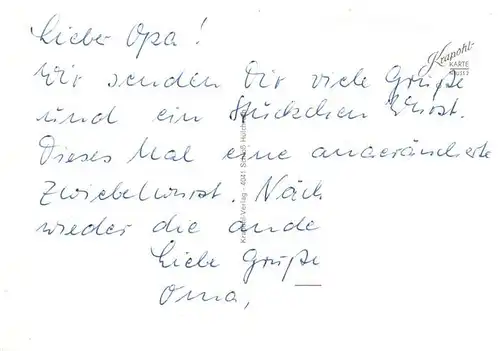 Liebe Opa!
Wir senden Dir viele Grüße
und ein Stückchen Wurst.
Dieses Mal eine angeräucherte
Zwiebelwurst. Näch
wieder die ande
Liebe Grüße
Oma,
Krapohl-
KARTE
Krapohl-Verlag - 4041 Schloß Hülchrath